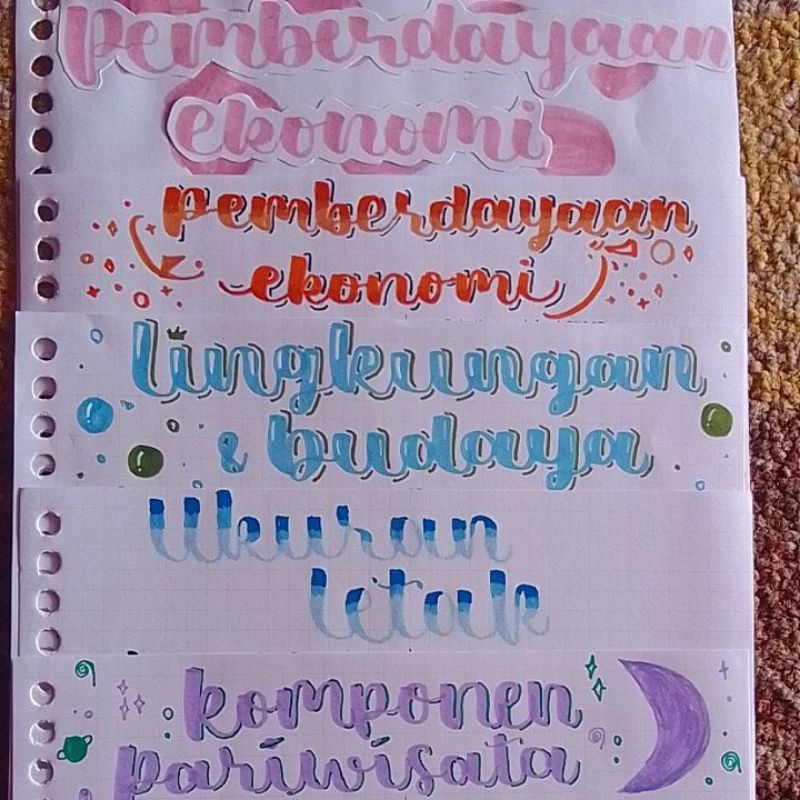 Pemberdayaan
ekonomi
Pemberdayaan
ekonomi
lingkungan
& budaya
Ukuran
letak
komponen
pariwisata